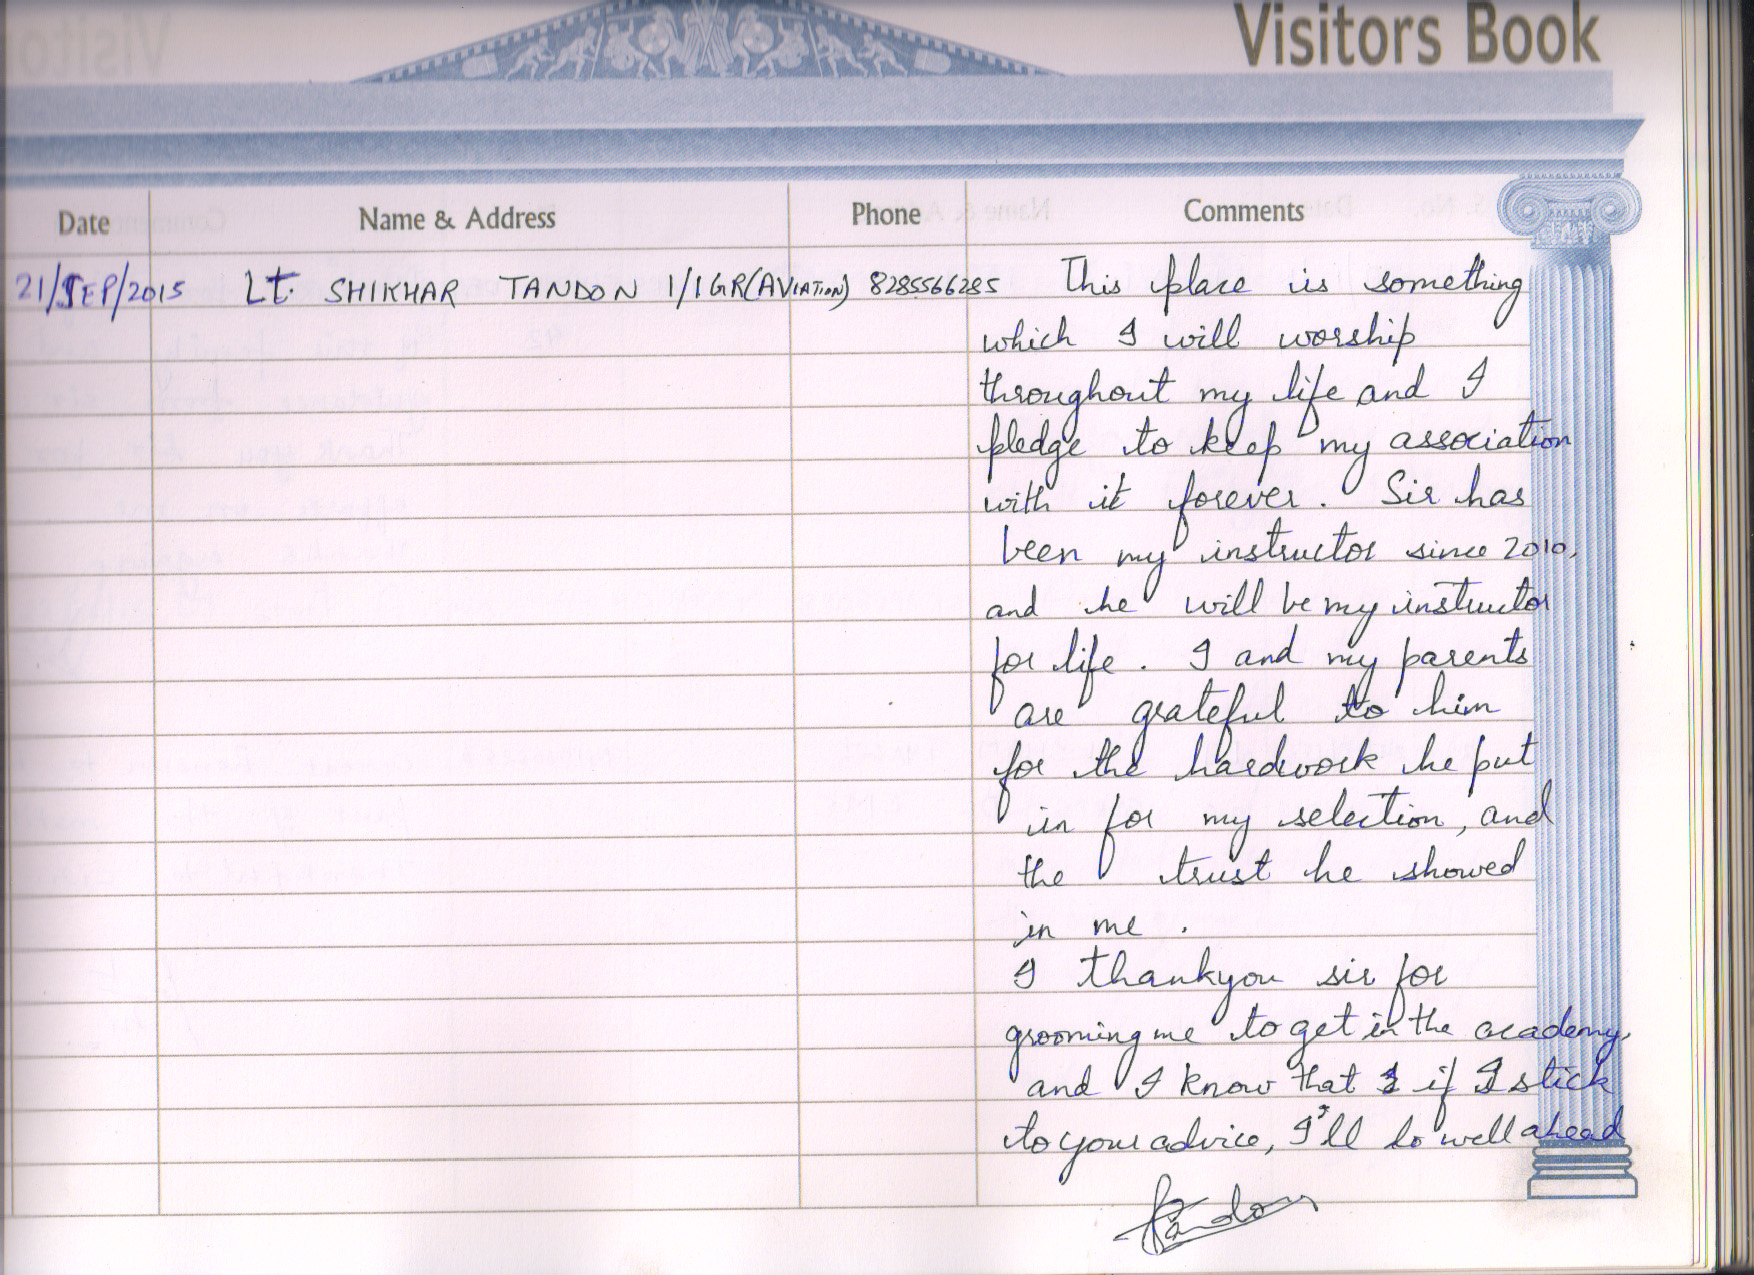 Visitors Book
Date Name & Address Phone Comments
21/SEP/2015 Lt. SHIKHAR TANDON 1/1GR(AVIATION) 8285566285 This place is something
which I will worship
throughout my life and I
pledge to keep my association
with it forever. Sir has
been my instructor since 2010,
and he will be my instructor
for life. I and my parents
are grateful to him
for the hardwork he put
in for my selection, and
the trust he showed
in me.
I thankyou sir for
grooming me to get in the academy,
and I know that if I stick
to your advice, I'll do well ahead
Tandon